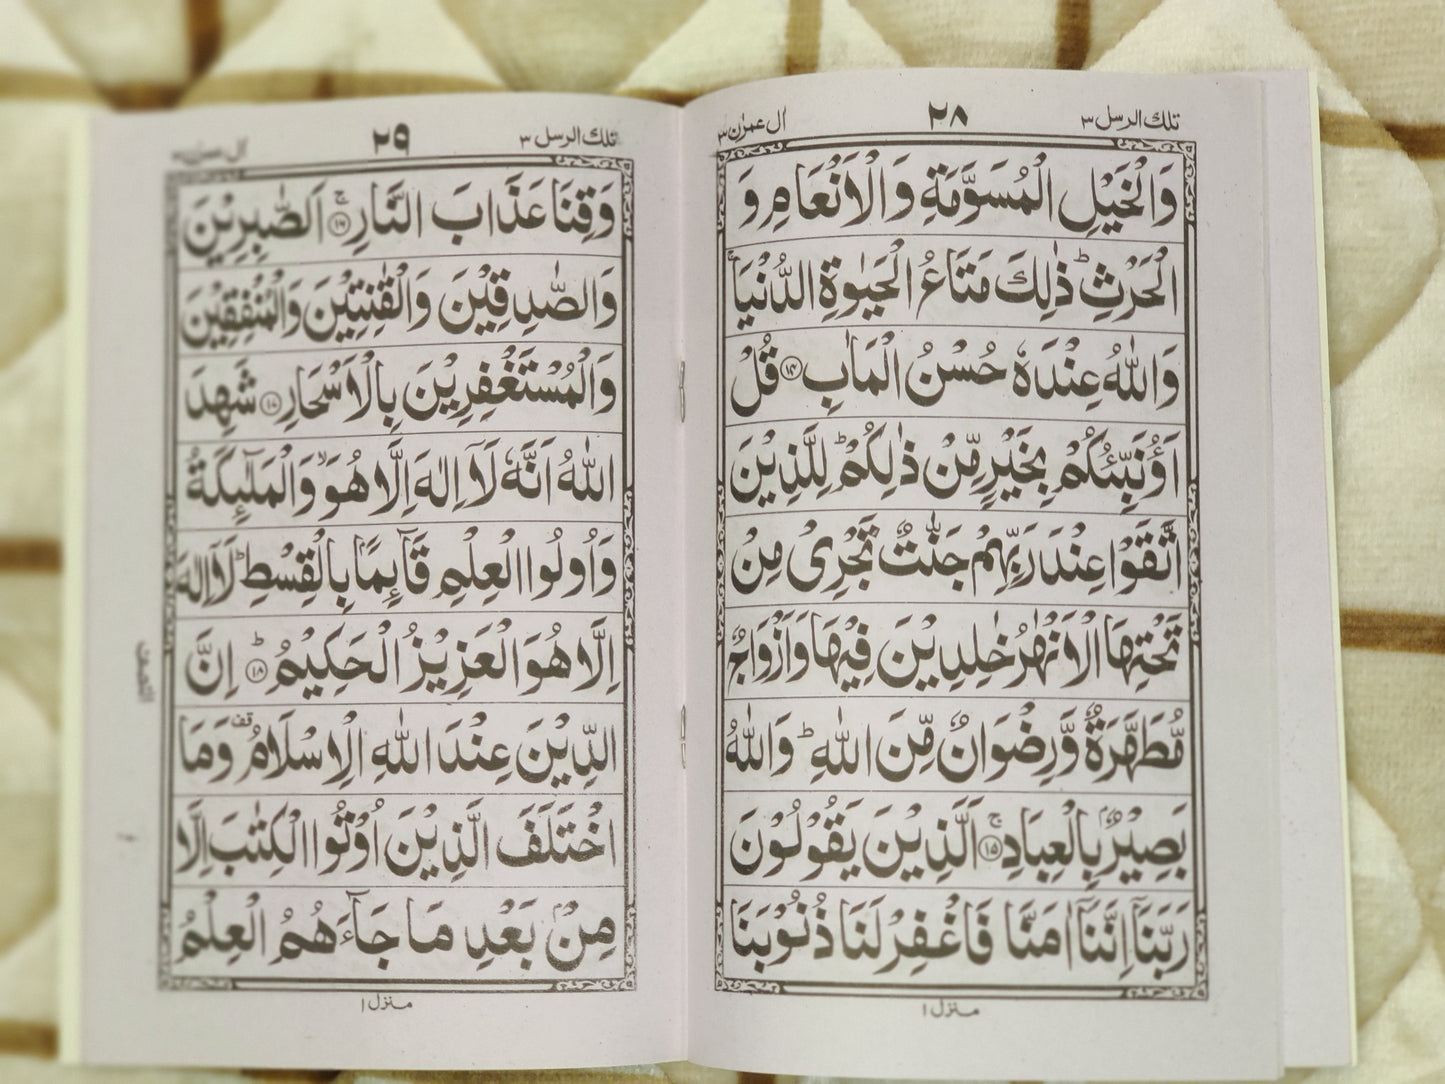 تلك الرسل ٣
٢٨
ال عمرٰن ٣
وَالْخَيْلِ الْمُسَوَّمَةِ وَالْاَنْعَامِ وَ
الْحَرْثِ ؕ ذٰلِكَ مَتَاعُ الْحَيٰوةِ الدُّنْيَا ۚ
وَاللّٰهُ عِنْدَهٗ حُسْنُ الْمَاٰبِ ﴿۱۴﴾ قُلْ
اَؤُنَبِّئُكُمْ بِخَيْرٍ مِّنْ ذٰلِكُمْ ؕ لِلَّذِيْنَ
اتَّقَوْا عِنْدَ رَبِّهِمْ جَنّٰتٌ تَجْرِىْ مِنْ
تَحْتِهَا الْاَنْهٰرُ خٰلِدِيْنَ فِيْهَا وَاَزْوَاجٌ
مُّطَهَّرَةٌ وَّرِضْوَانٌ مِّنَ اللّٰهِ ؕ وَاللّٰهُ
بَصِيْرٌۢ بِالْعِبَادِ ۚ ﴿۱۵﴾ اَلَّذِيْنَ يَقُوْلُوْنَ
رَبَّنَاۤ اِنَّنَاۤ اٰمَنَّا فَاغْفِرْ لَنَا ذُنُوْبَنَا
منزل ١
تلك الرسل ٣
٢٩
ال عمرٰن ٣
وَقِنَا عَذَابَ النَّارِ ۚ ﴿۱۶﴾ اَلصّٰبِرِيْنَ
وَالصّٰدِقِيْنَ وَالْقٰنِتِيْنَ وَالْمُنْفِقِيْنَ
وَالْمُسْتَغْفِرِيْنَ بِالْاَسْحَارِ ﴿۱۷﴾ شَهِدَ
اللّٰهُ اَنَّهٗ لَاۤ اِلٰهَ اِلَّا هُوَ ۙ وَالْمَلٰٓئِكَةُ
وَاُولُوا الْعِلْمِ قَآئِمًۢا بِالْقِسْطِ ؕ لَاۤ اِلٰهَ
اِلَّا هُوَ الْعَزِيْزُ الْحَكِيْمُ ؕ ﴿۱۸﴾ اِنَّ
الدِّيْنَ عِنْدَ اللّٰهِ الْاِسْلَامُ قف وَمَا
اخْتَلَفَ الَّذِيْنَ اُوْتُوا الْكِتٰبَ اِلَّا
مِنْۢ بَعْدِ مَا جَآءَهُمُ الْعِلْمُ
منزل ١